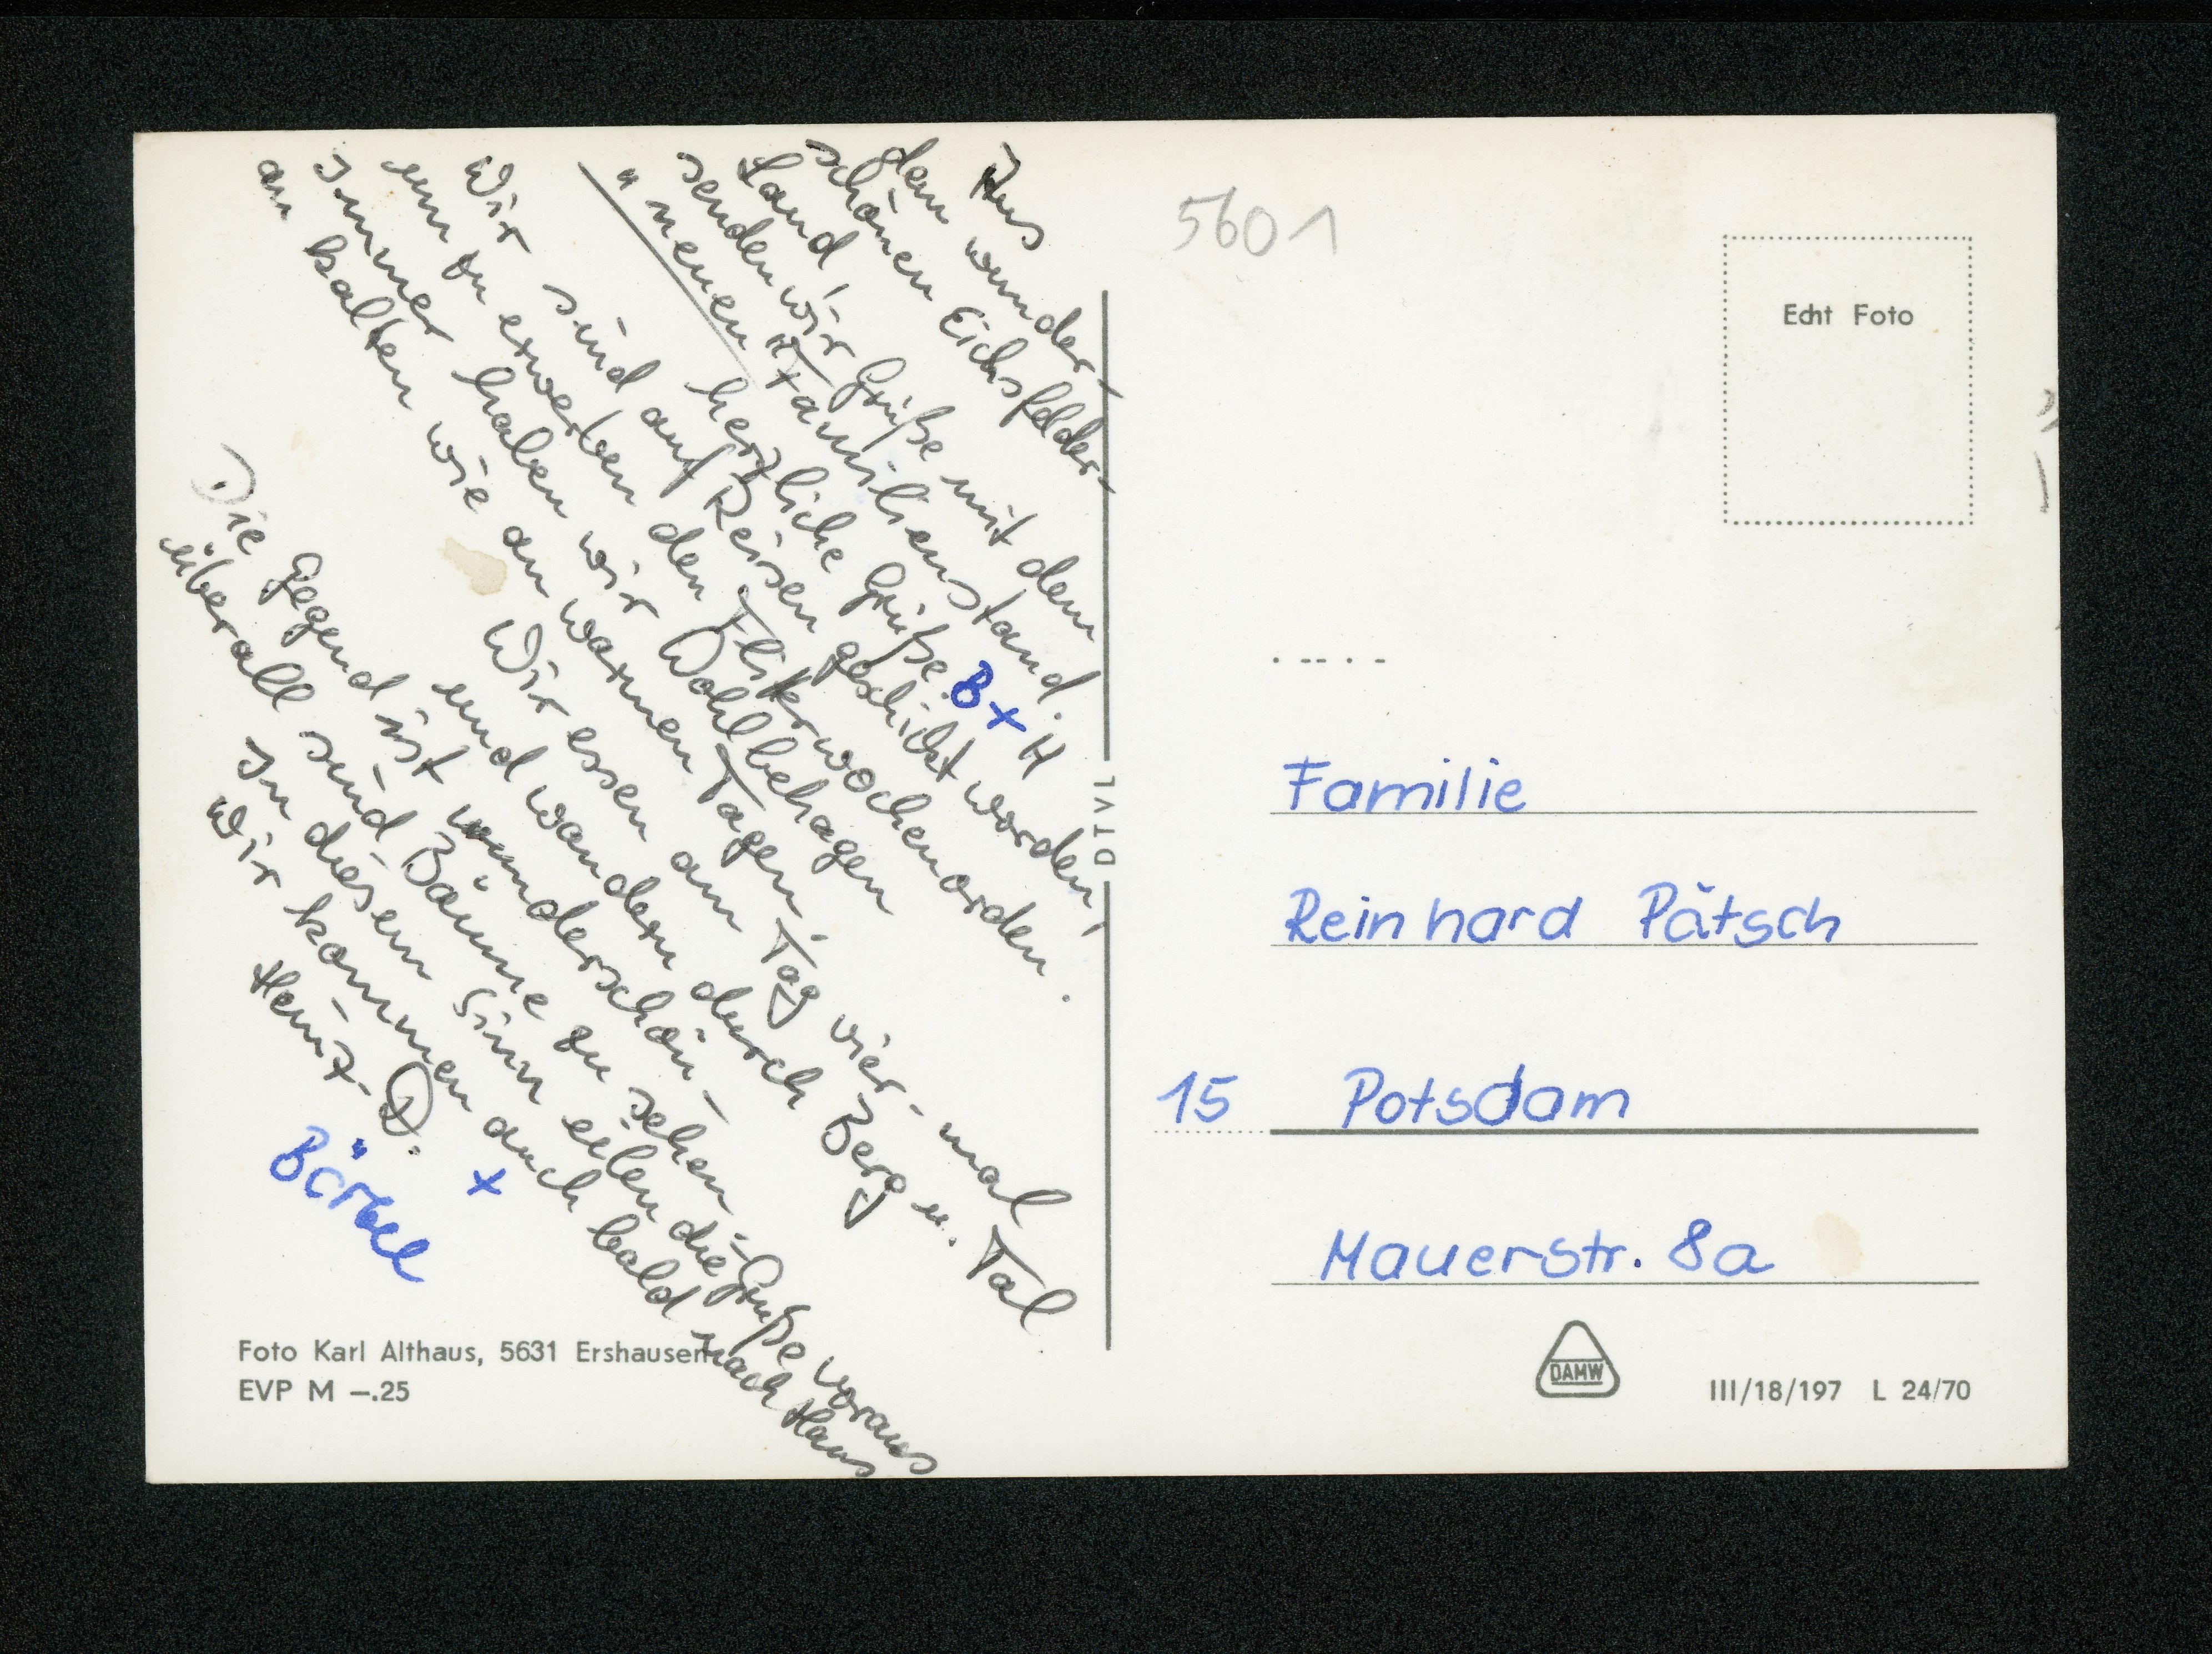 Aus
dem wunder-
schönen Eichsfelder-
Land
senden wir Grüße mit dem
"neuen" Familienstand.
herzliche Grüße. B + H
Wir sind auf Reisen geschickt worden,
um zu erwerben den Flitterwochenorden.
Immer haben wir Wohlbehagen
an kalten wie an warmen Tagen.
Wir essen am Tag vier-mal
und wandern durch Berg u. Tal
Die Gegend ist wunderschön -
überall sind Bäume zu sehen -
In diesem Sinn eilen die Grüße voraus
Wir kommen auch bald nach Haus
Heinz-D. +
Bärbel
Foto Karl Althaus, 5631 Ershausen
EVP M –.25
DTVL
5601
Echt Foto
Familie
Reinhard Pätsch
15 Potsdam
Mauerstr. 8a
DAMW
III/18/197 L 24/70